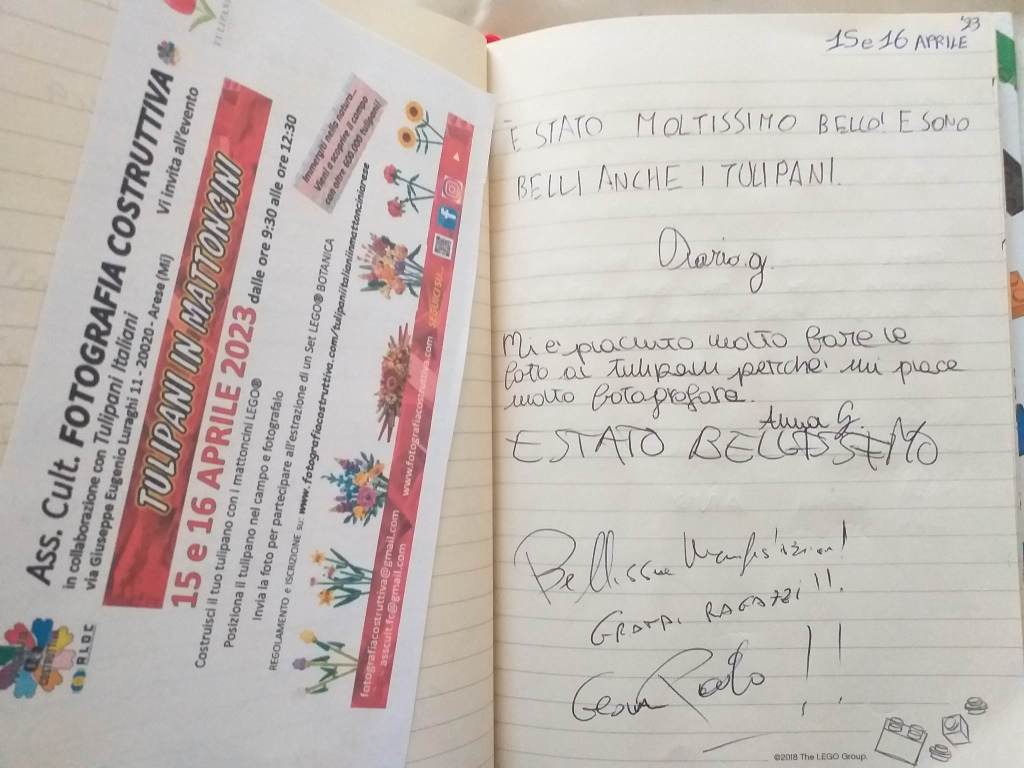 Ass. Cult. FOTOGRAFIA COSTRUTTIVA
in collaborazione con Tulipani Italiani
via Giuseppe Eugenio Luraghi 11 - 20020 - Arese (Mi)
Vi invita all'evento
TULIPANI IN MATTONCINI
15 e 16 APRILE 2023 dalle ore 9:30 alle ore 12:30
Costruisci il tuo tulipano con i mattoncini LEGO®
Posiziona il tulipano nel campo e fotografalo
Invia la foto per partecipare all'estrazione di un Set LEGO® BOTANICA
REGOLAMENTO e ISCRIZIONE su: www.fotografiacostruttiva.com/tulipaniitalianiinmattonciniarese
Immergiti nella natura...
Vieni a scoprire il campo
con oltre 600.000 tulipani!
fotografiacostruttiva@gmail.com
asscult.fc@gmail.com
www.fotografiacostruttiva.com
SEGUICI SU:
BRLOC
15 e 16 APRILE '23
È STATO MOLTISSIMO BELLO! E SONO
BELLI ANCHE I TULIPANI.
Mi è piaciuto molto fare le
foto ai tulipani perché mi piace
molto fotografare.
Anna G.
E STATO BELLISSIMO
GRANDI RAGAZZI!!!
©2018 The LEGO Group.